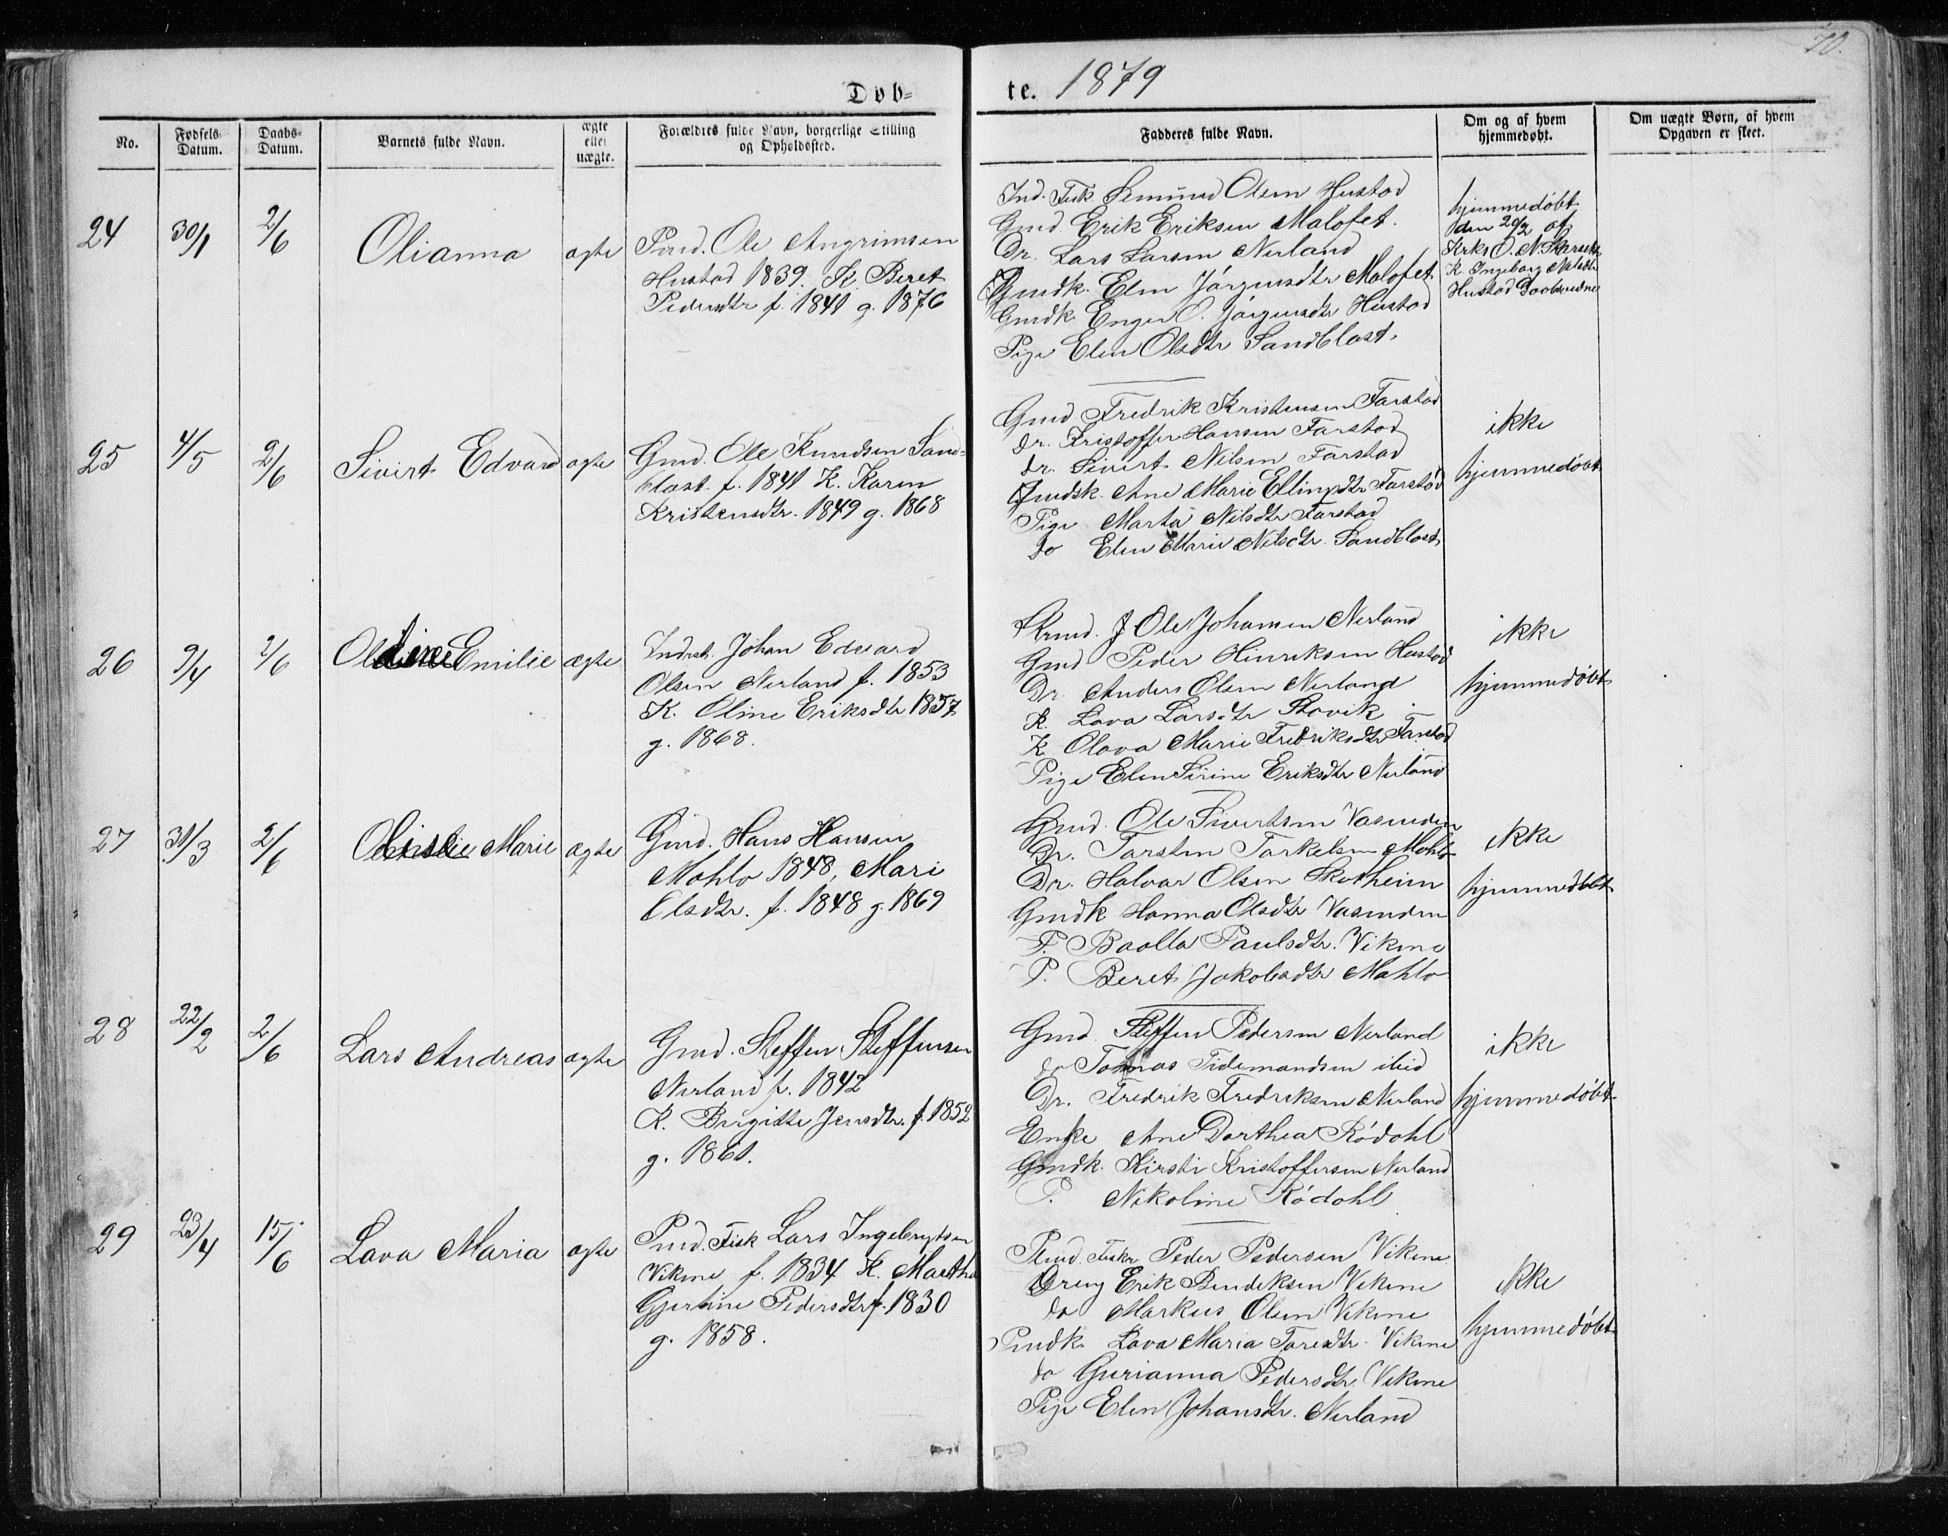 70.
Døb= te. 1879
No. Fødsels Datum. Daabs- Datum. Barnets fulde Navn. ægte eller uægte. Forældres fulde Navn, borgerlige Stilling og Opholdssted. Fadderes fulde Navn. Om og af hvem hjemmedøbt. Om uægte Børn, af hvem Opgaven er skeet.
24 30/1 2/6 Olianna ægte
Pmd. Ole Angrimsen
Hustad 1839. K. Beret
Pedersdtr f. 1841 g. 1876
Ind. Fisk Semund Olsen Hustad
Gmd Erik Eriksen Malefet.
Dr. Lars Larsen Nerland
Gmdk. Elen Jørgensdtr Malefet
Gmdk Enger O. Jørgensdtr Hustad
Pige Elen Olsdtr Sandblast.
hjemmedøbt
den 20/2 af
Krks O. N.
K Ingeborg Nilsdtr
Hustad Daabsvidne
25 4/5 2/6 Sivert Edvard ægte
Gmd. Ole Knudsen Sand=
blast. f. 1841 K. Karen
Kristensdtr. 1849 g. 1868
Gmd. Fredrik Kristensen Farstad
dr. Kristoffer Hansen Farstad
dr. Sivert Nilsen Farstad
Gmdsk. Ane Marie Ellingsdtr Farstad
Pige Marta Nilsdtr Farstad
do Elen Marie Nilsdtr. Sandblast.
ikke
hjemmedøbt
26 9/4 2/6 Oldine Emilie ægte
Indrst. Johan Edvard
Olsen Nerland f. 1853
K. Oline Eriksdtr 1857
g. 1868.
Gmd. J Ole Johansen Nerland
Gmd Peder Hinriksen Hustad
Dr. Anders Olsen Nerland
K. Lava Larsdtr Stavik
K Olava Marie Fredriksdtr Farstad
Pige Elen Sirine Eriksdtr Nerland
ikke
hjemmedøbt
27 31/3 2/6 Marie ægte
Gmd. Hans Hansen
Mahlo 1848, Mari
Olsdtr. f. 1848 g. 1869
Gmd. Ole Sivertsen Vasenden
Dr. Tarsten Tarkelsen Mahlo
Dr. Halvar Olsen Skotheim
Gmdk Hanna Olsdtr Vasenden
P. Baolla Paulsdtr. Vikene
P. Beret Jakobsdtr Mahlo
ikke
hjemmedøbt
28 22/2 2/6 Lars Andreas ægte
Gmd. Steffen Steffensen
Nerland f. 1842
K. Birgitte Jensdtr. f. 1852
g. 1861.
Gmd. Steffen Pedersen Nerland
do Tomas Tidemandsen ibid
Dr. Fredrik Fredriksen Nerland
Enke Ane Dorthea Rødahl
Gmdk. Kirsti Kristoffersen Nerland
P. Nikoline Rødahl
ikke
hjemmedøbt
29 23/4 15/6 Lava Maria ægte
Pmd. Fisk Lars Ingebrigtsen
Vikene f. 1834 K. Martha
Gjertine Pedersdtr f. 1830
g. 1858.
Pmd. Fisker Peder Pedersen Vikene
Dreng Erik Bendiksen Vikene
do Markus Olsen Vikene
Pmdk. Lava Maria Taresdtr. Vikene
do Gurianna Pedersdtr. Vikene
Pige Elen Johansdtr. Nerland
ikke
hjemmedøbt